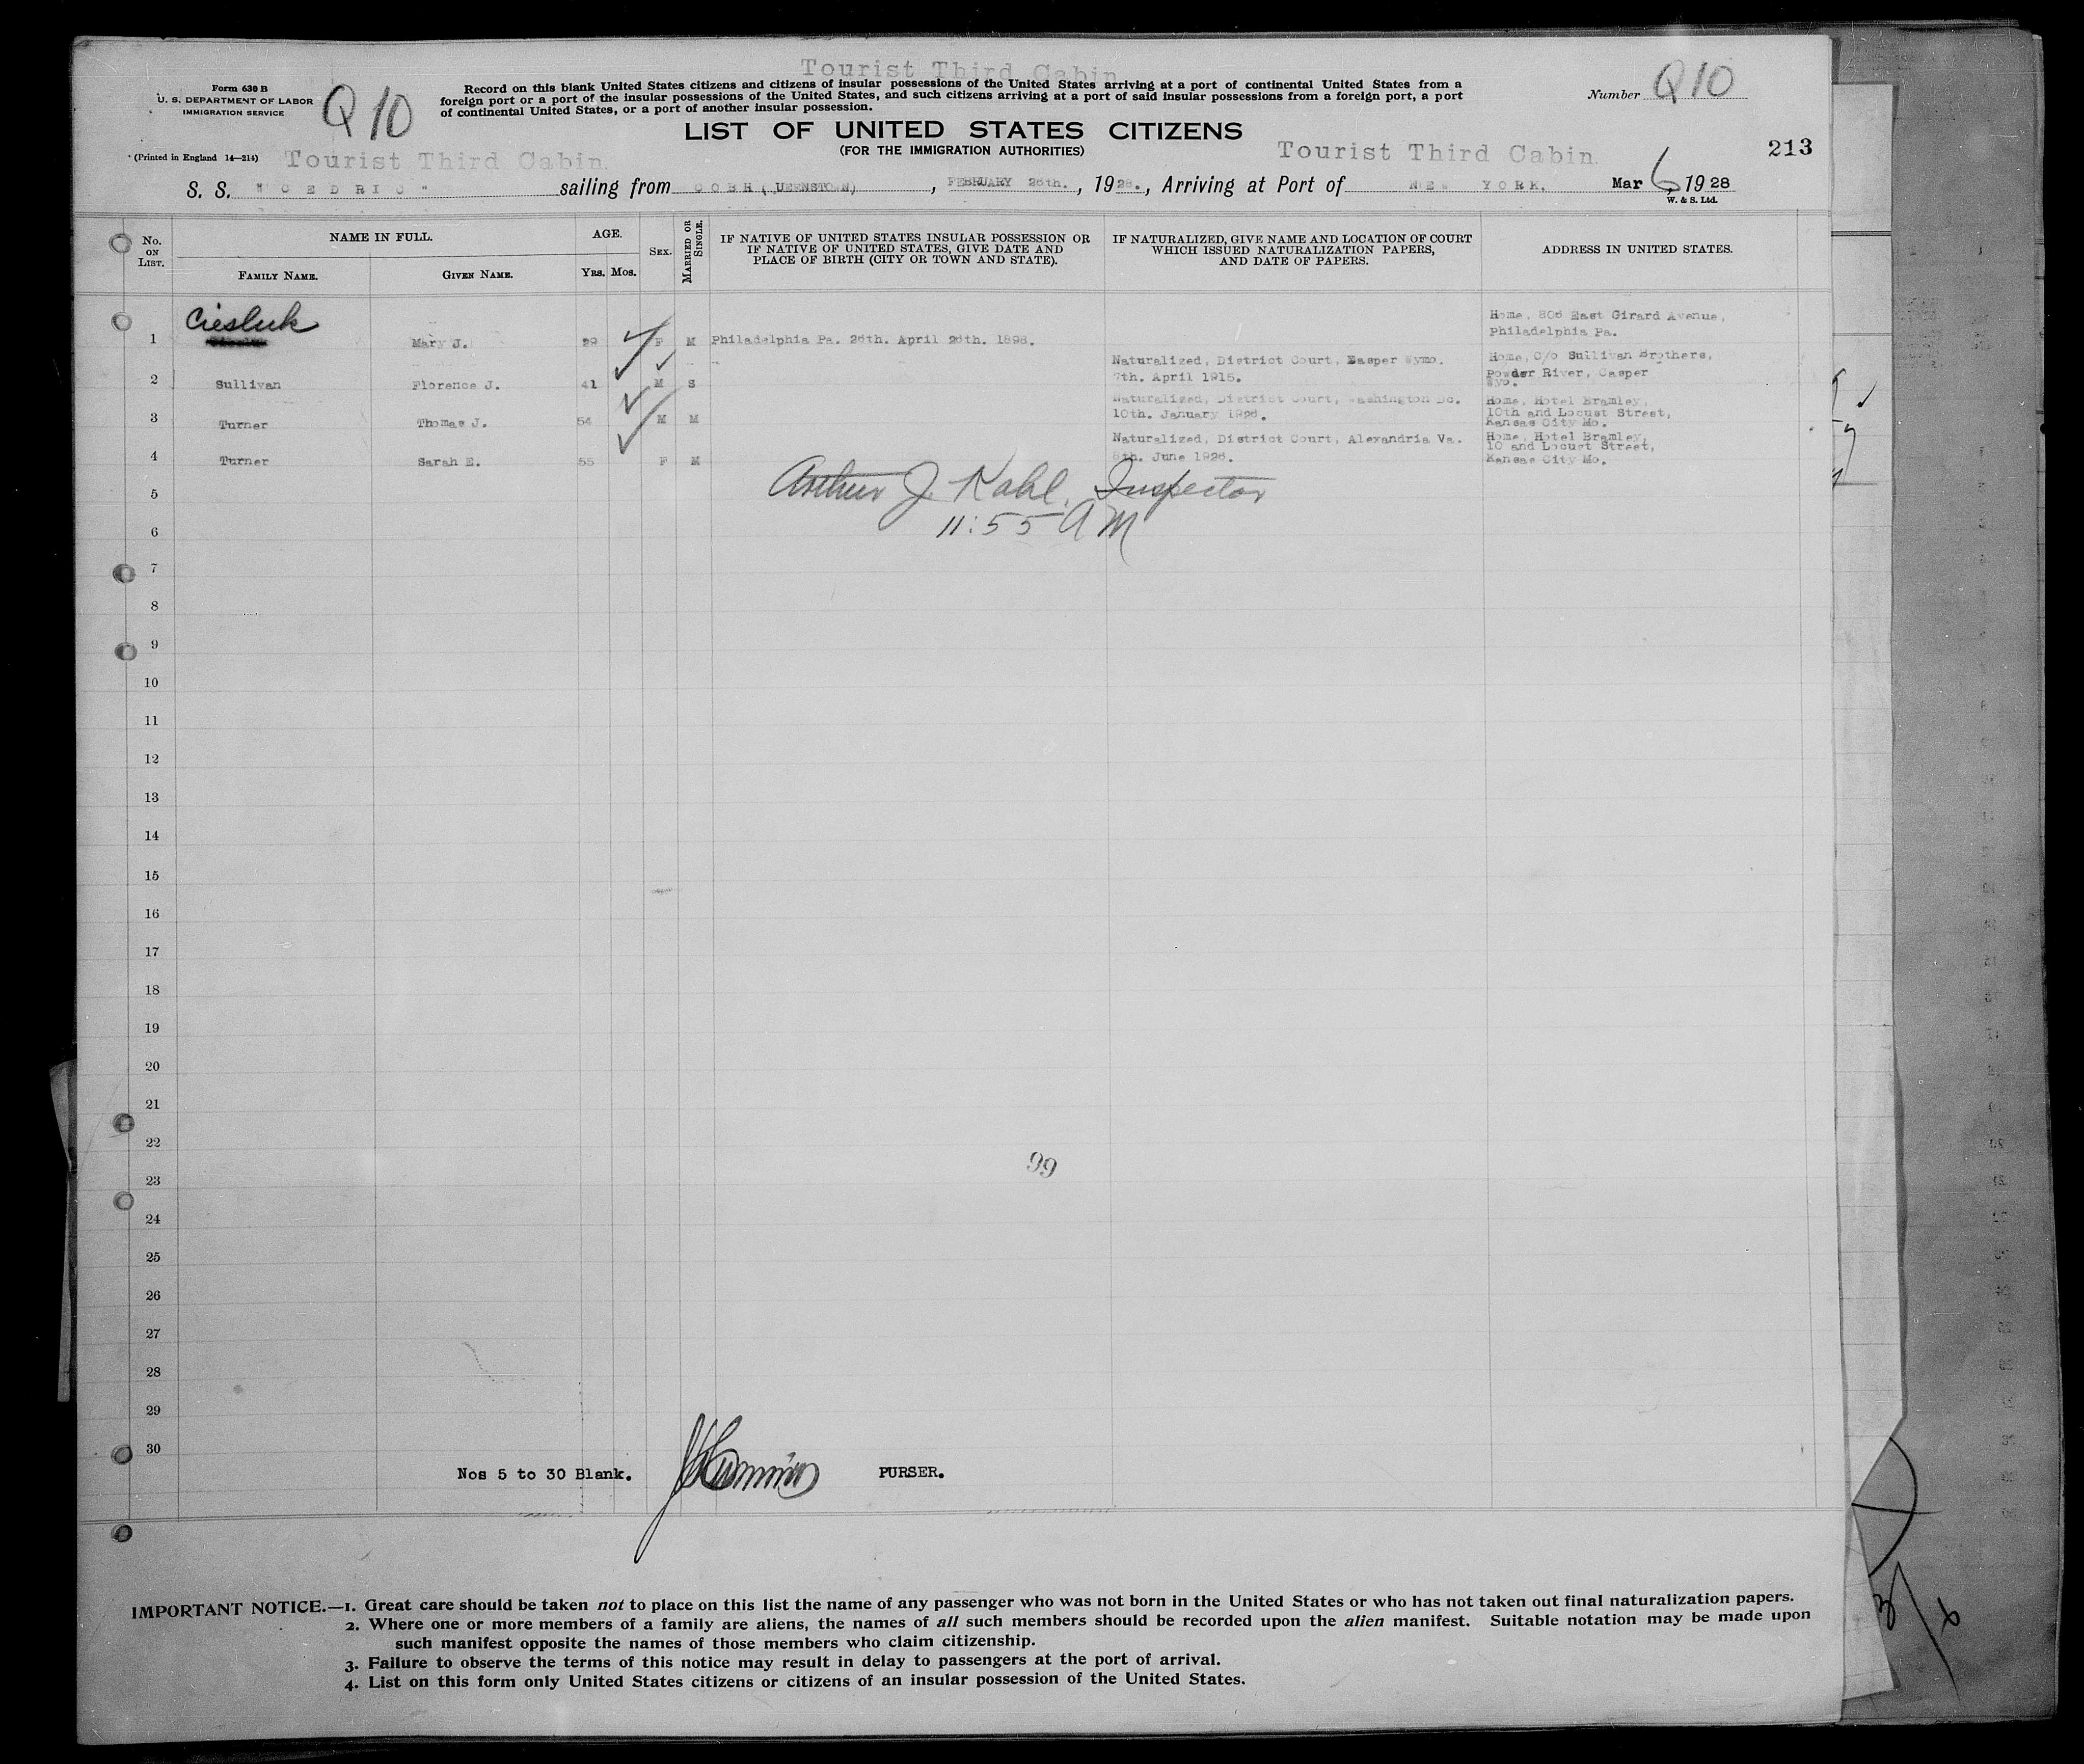 Tourist Third Cabin
Form 630 B
U. S. DEPARTMENT OF LABOR
IMMIGRATION SERVICE
Q10
Record on this blank United States citizens and citizens of insular possessions of the United States arriving at a port of continental United States from a
foreign port or a port of the insular possessions of the United States, and such citizens arriving at a port of said insular possessions from a foreign port, a port
of continental United States, or a port of another insular possession.
Number Q10
LIST OF UNITED STATES CITIZENS
(FOR THE IMMIGRATION AUTHORITIES)
(Printed in England 14—214)
Tourist Third Cabin
Tourist Third Cabin
213
S. S. "CEDRIC" sailing from COBH (UEENSTOWN), FEBRUARY 26th., 1928., Arriving at Port of NEW YORK, Mar 6, 1928
W. & S. Ltd.
No. ON LIST.
NAME IN FULL.
FAMILY NAME.
GIVEN NAME.
AGE.
Yrs. Mos.
SEX.
MARRIED OR SINGLE.
IF NATIVE OF UNITED STATES INSULAR POSSESSION OR
IF NATIVE OF UNITED STATES, GIVE DATE AND
PLACE OF BIRTH (CITY OR TOWN AND STATE).
IF NATURALIZED, GIVE NAME AND LOCATION OF COURT
WHICH ISSUED NATURALIZATION PAPERS,
AND DATE OF PAPERS.
ADDRESS IN UNITED STATES.
Ciesluk
1 Mary J. 29 F M Philadelphia Pa. 26th. April 26th. 1898.
Home, 806 East Girard Avenue,
Philadelphia Pa.
2 Sullivan Florence J. 41 M S
Naturalized, District Court, Easper Wymo.
7th. April 1915.
Home, C/o Sullivan Brothers,
Powder River, Casper
Wyo.
3 Turner Thomas J. 54 M M
Naturalized, District Court, Washington Dc.
10th. January 1926.
Home, Hotel Bramley,
10th and Locust Street,
Kansas City Mo.
4 Turner Sarah E. 55 F M
Naturalized, District Court, Alexandria Va.
6th. June 1926.
Home, Hotel Bramley,
10 and Locust Street,
Kansas City Mo.
Arthur J. Kahl, Inspector
11:55 AM
5
6
7
8
9
10
11
12
13
14
15
16
17
18
19
20
21
22
99
23
24
25
26
27
28
29
30
Nos 5 to 30 Blank.
PURSER.
IMPORTANT NOTICE.—1. Great care should be taken not to place on this list the name of any passenger who was not born in the United States or who has not taken out final naturalization papers.
2. Where one or more members of a family are aliens, the names of all such members should be recorded upon the alien manifest. Suitable notation may be made upon
such manifest opposite the names of those members who claim citizenship.
3. Failure to observe the terms of this notice may result in delay to passengers at the port of arrival.
4. List on this form only United States citizens or citizens of an insular possession of the United States.